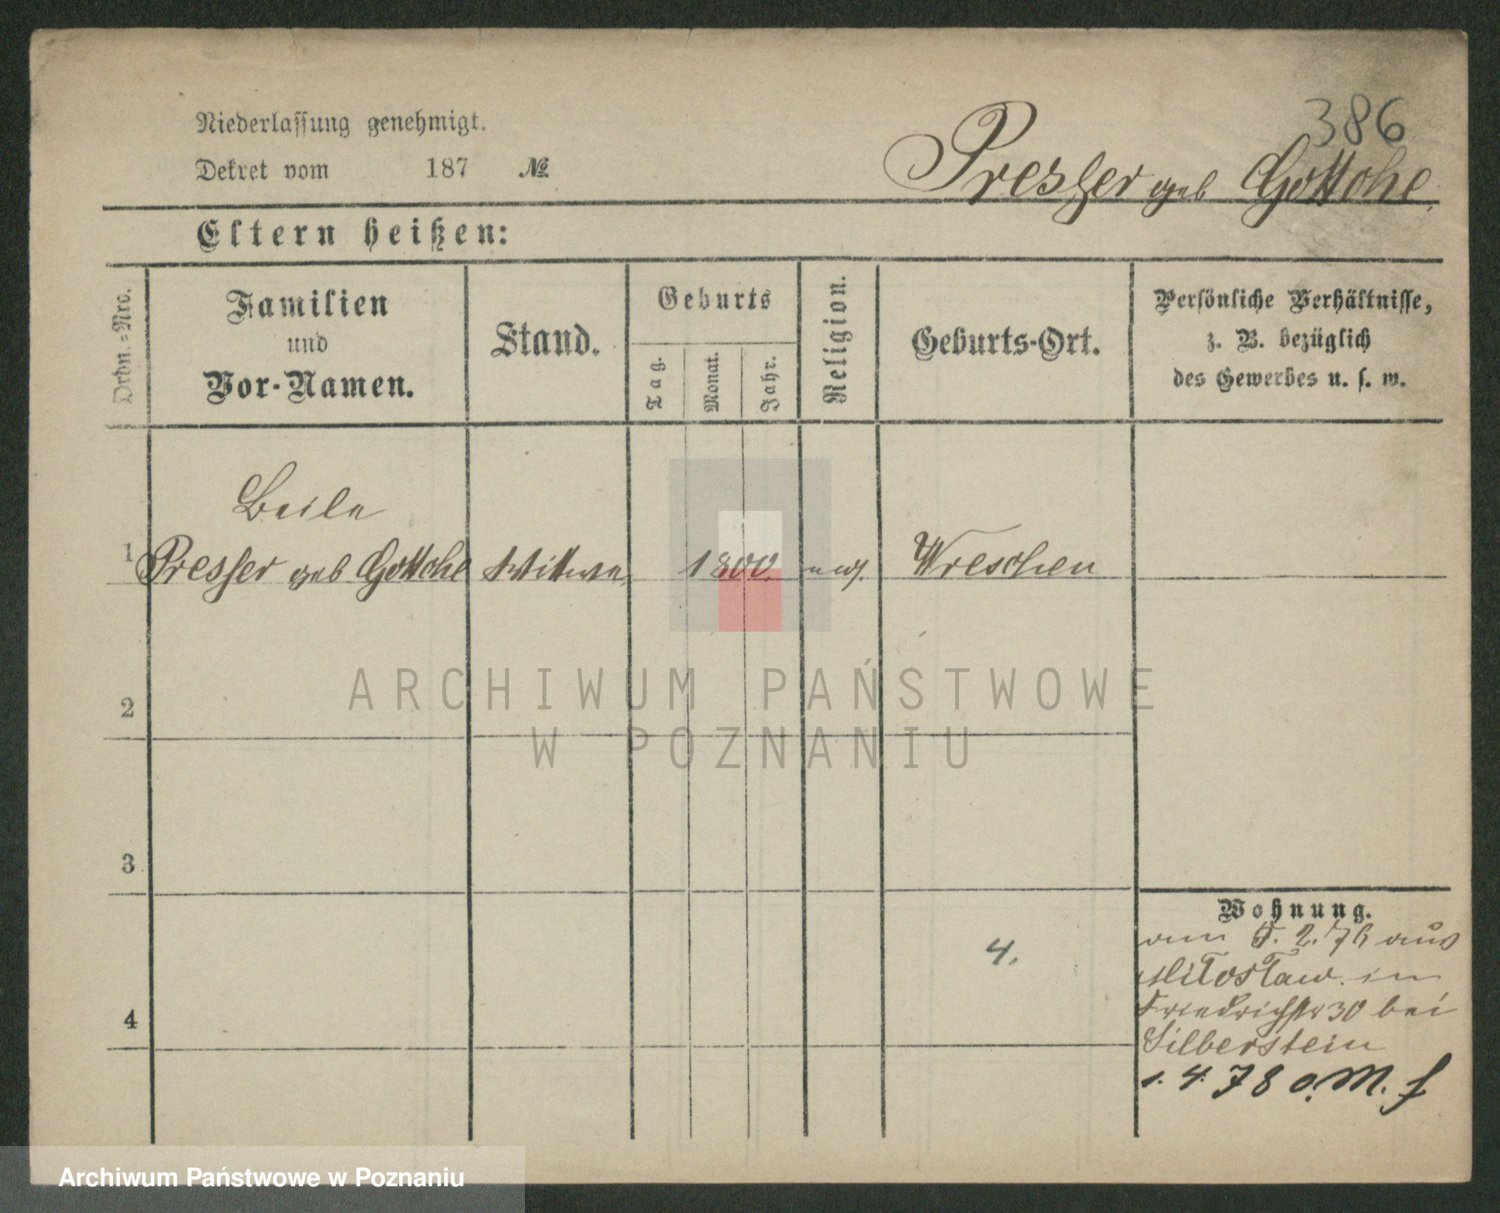 386
Niederlassung genehmigt.
Dekret vom 187 №
Presser geb Gottohe
Eltern heißen:
Ordn.=Nro.
Familien
und
Vor-Namen.
Stand.
Geburts
Tag.
Monat.
Jahr.
Religion.
Geburts-Ort.
Persönliche Verhältnisse,
z. B. bezüglich
des Gewerbes u. s. w.
Beile
1 Presser geb Gottohe Wittwe 1800. Wreschen
2
3
4
4.
Wohnung.
am 2. 76 aus
Miloslaw. in
Friedrichstr 30 bei
Silberstein
1. 4. 78 o. M. f
ARCHIWUM PAŃSTWOWE
W POZNANIU
Archiwum Państwowe w Poznaniu